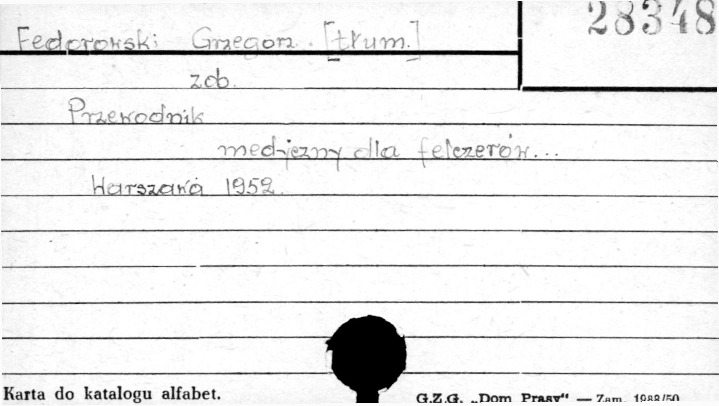 28348
Fedorowski Grzegorz. [tłum.]
zob.
Przewodnik
medyczny dla felczerów...
Warszawa 1952.
Karta do katalogu alfabet.
G.Z.G. „Dom Prasy" — Zam. 1988/50